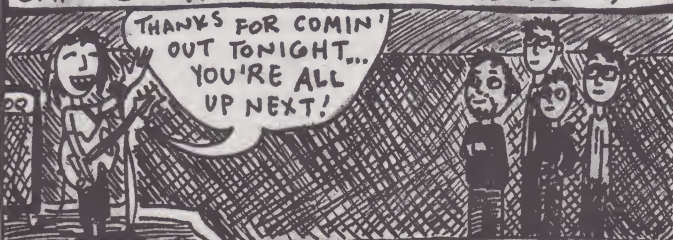 THANKS FOR COMIN'
OUT TONIGHT...
YOU'RE ALL
UP NEXT!